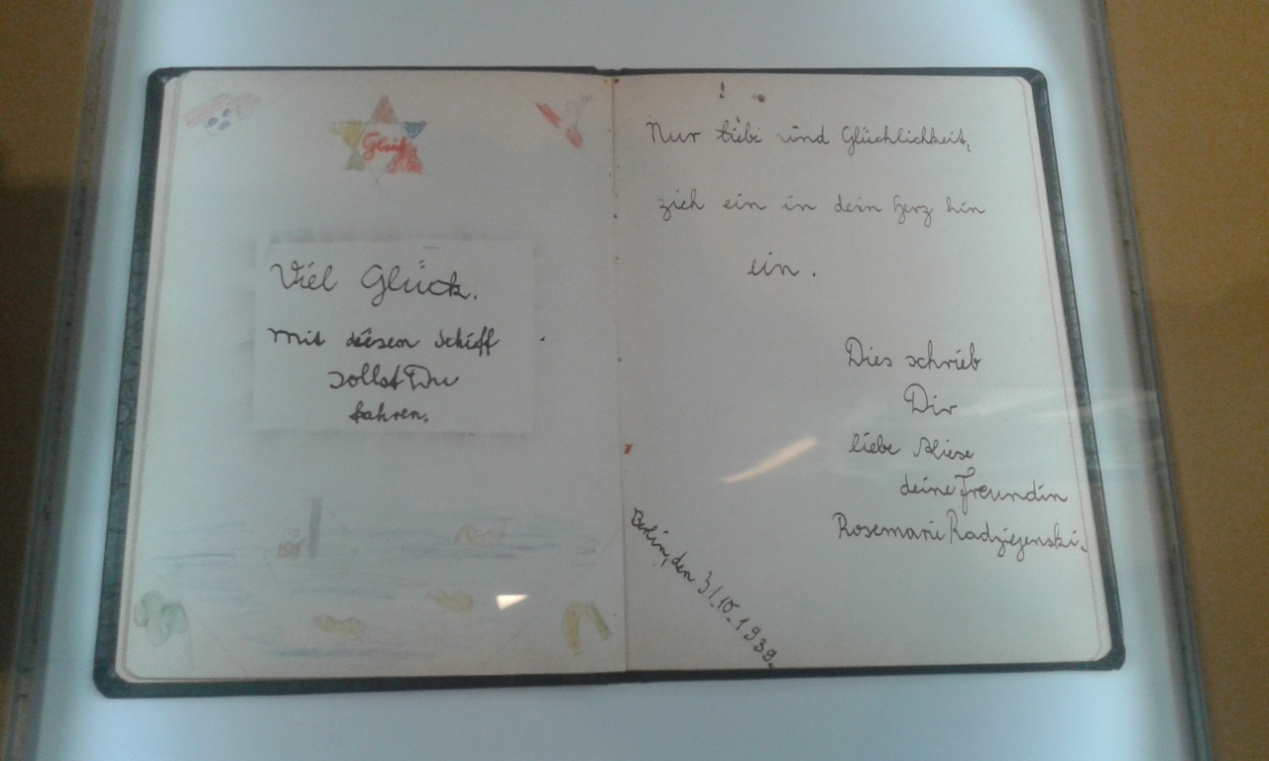 Glück
Viel Glück.
Mit diesem Schiff
sollst Du
fahren.
Nur Liebe und Glüchlichkeit,
zieh ein in dein Herz hin
ein.
Dies schrieb
Dir
liebe
deine Freundin
Rosemarie
Berlin, den 31.10.1939.